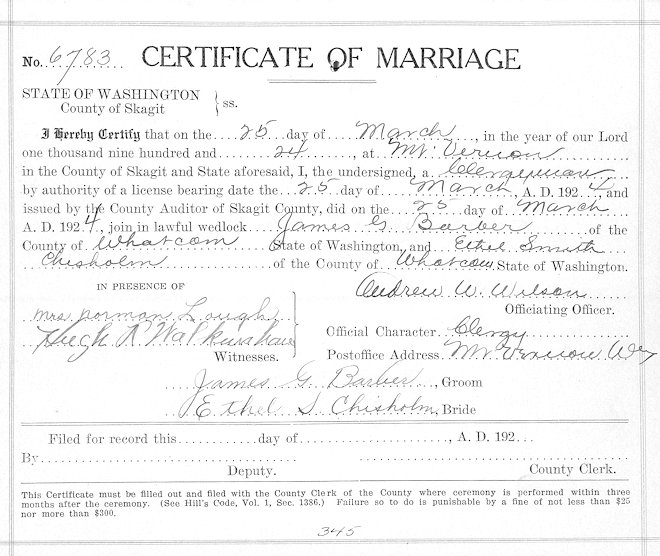 No. 6783 CERTIFICATE OF MARRIAGE
STATE OF WASHINGTON
County of Skagit } ss.
I Hereby Certify that on the 25 day of March, in the year of our Lord
one thousand nine hundred and 24, at Mt. Vernon
in the County of Skagit and State aforesaid, I, the undersigned, a Clergyman
by authority of a license bearing date the 25 day of March, A. D. 1924, and
issued by the County Auditor of Skagit County, did on the 25 day of March
A. D. 1924, join in lawful wedlock James G. Barber of the
County of Whatcom State of Washington, and Ethel Smith
Chisholm of the County of Whatcom State of Washington.
IN PRESENCE OF
Andrew W. Wilson
Officiating Officer.
Mrs Norman Lough
Hugh R
Witnesses.
Official Character. Clergy
Postoffice Address. Mt Vernon
James G. Barber, Groom
Ethel S. Chisholm, Bride
Filed for record this day of , A. D. 192
By
Deputy. County Clerk.
This Certificate must be filled out and filed with the County Clerk of the County where ceremony is performed within three
months after the ceremony. (See Hill's Code, Vol. 1, Sec. 1386.) Failure so to do is punishable by a fine of not less than $25
nor more than $300.
345